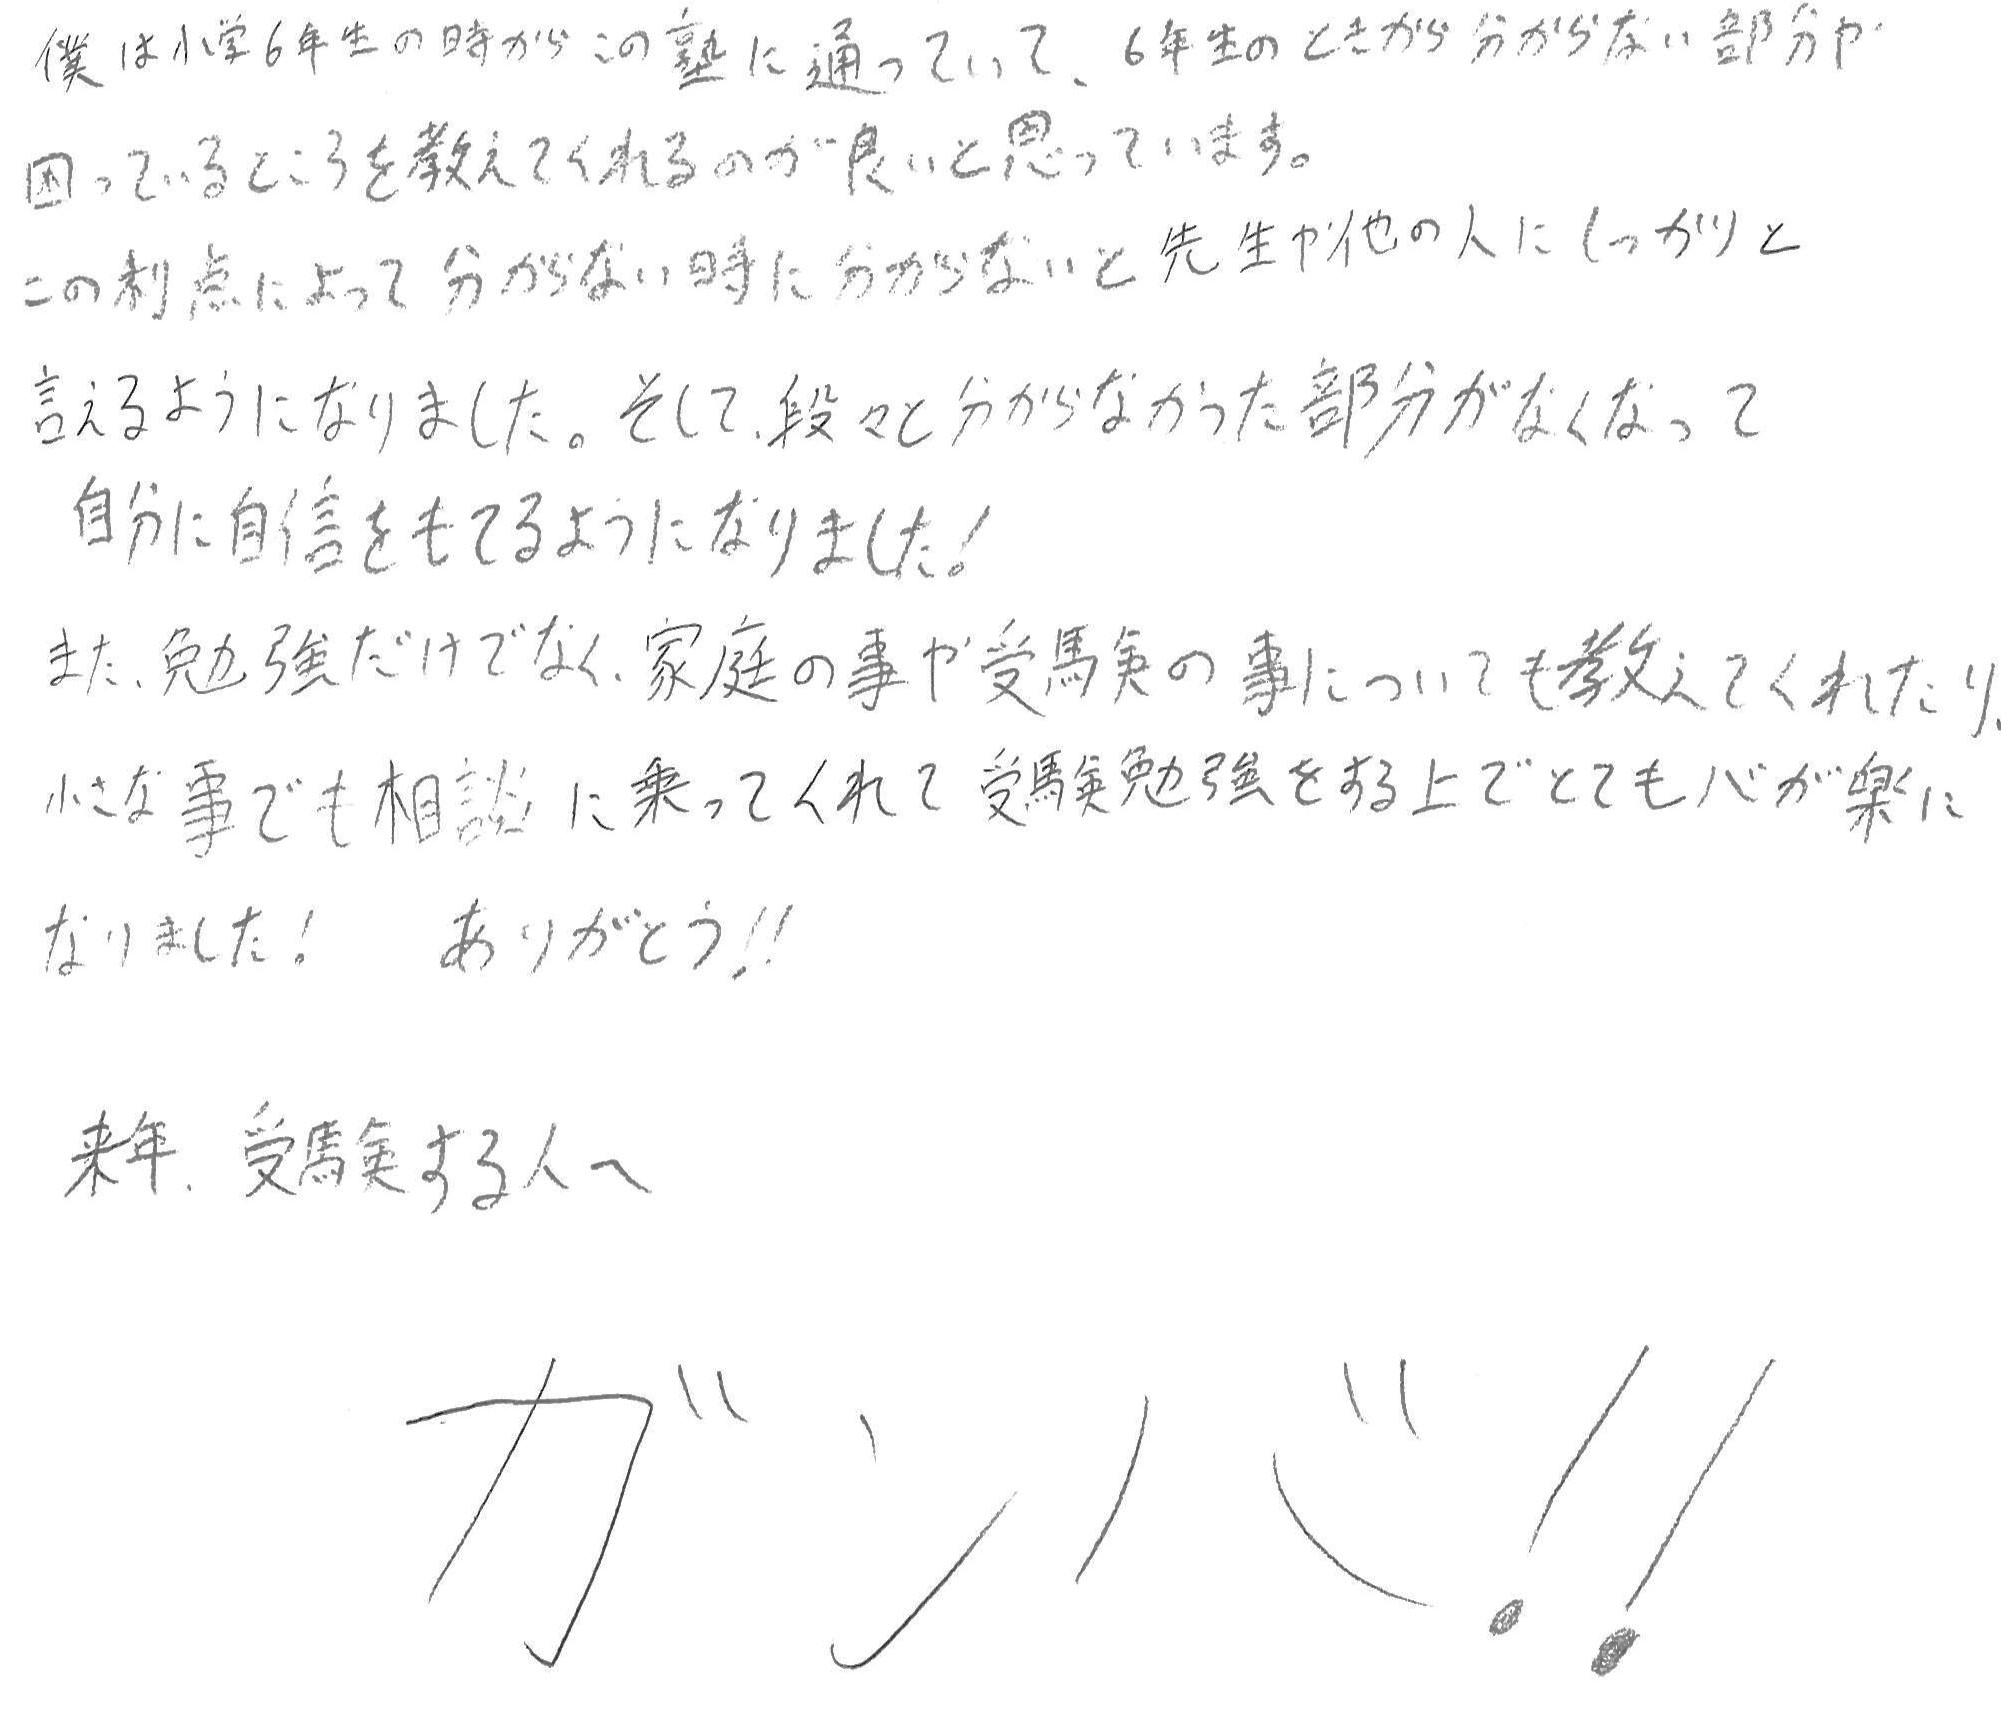 僕は小学6年生の時からこの塾に通っていて、6年生のときから分からない部分や
困っているところを教えてくれるのが良いと思っています。
この利点によって分からない時に分からないと先生や他の人にしっかりと
言えるようになりました。そして、段々と分からなかった部分がなくなって
自分に自信をもてるようになりました!
また、勉強だけでなく、家庭の事や受験の事についても教えてくれたり、
小さな事でも相談に乗ってくれて受験勉強をする上でとても心が楽に
なりました! ありがとう!!
来年、受験する人へ
ガンバ!!